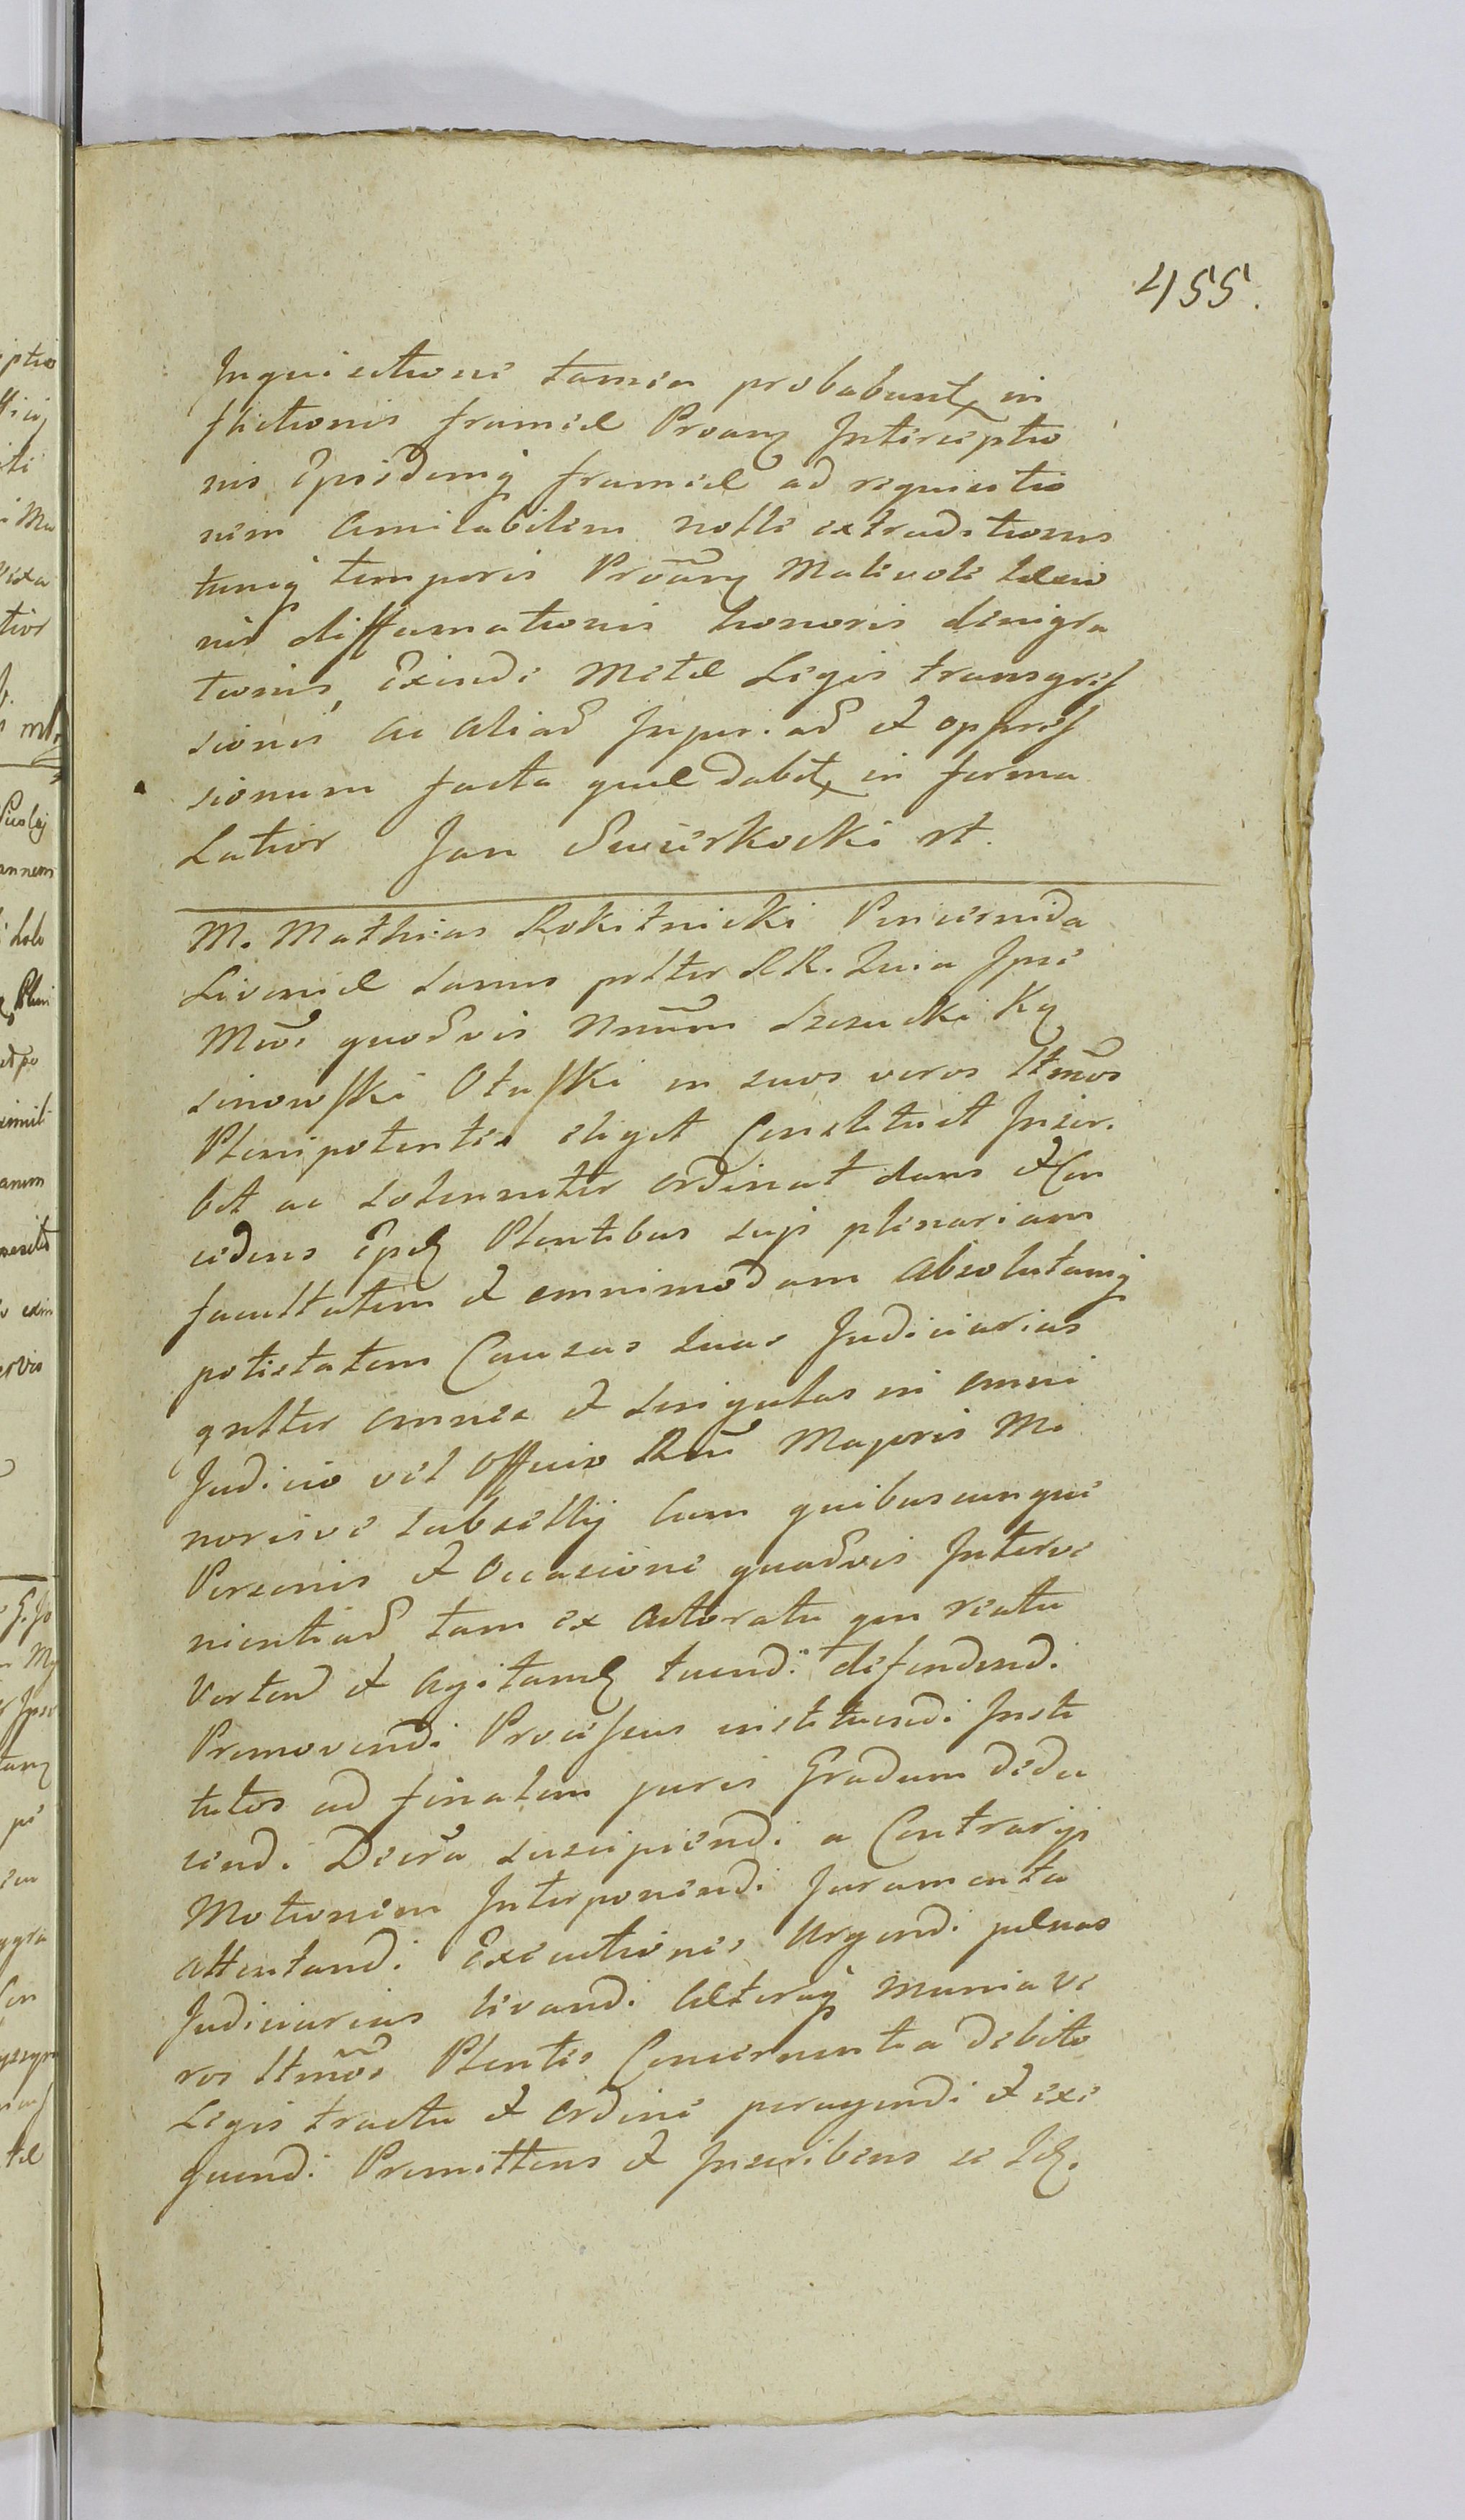 455.
Inquisitione tamen probabunt in
flictionis frumel Proanz Interceptio
nis Epsidemq frumel ad requisitio
nem Amicabilem nolle extraditionis
tuncq temporis Proãnz Malivole
nis diffamationis honoris denigra
tionis, Exinde Metæ Legis transgres
sionis ac aliad Injuriad et oppres
sionum facta quæ dabit in forma
Latior Jan Swierkocki rt.
M. Mathias Rokitnicki Pincernida
Livoniæ sanus pltter RR. Quia Ipse
Mcos quosvis Nnum Szczucki Ky
sinowski Otuski in suos veros Ltmos
Plenipotentes eliget Constituit Inscri
bit ac solenniter ordinat dans et Con
cedens Epsis Plentibus suis plenariam
facultatem et omnimodam absolutamq
potestatem Causas suas Judiciarias
gnltter omnes et singulas in omni
Judicio vel Officio Rni Majoris Mi
norisve subsellij cum quibuscunque
Personis et Occasione quasvis Interve
nientiad tam ex Actoratu qm reatu
Verten et agitam tuendi defendendi
Promovendi Processus instituendi Insti
tutos ad finalem juris Gradum dedu
cendi Decra suscipiendi a Contrarijs
Motionem Interponendi Juramenta
attentandi Executiones Urgendi pænas
Judiciarias levandi Cæteraq munia ve
ros Ltmos Plentes Concernentia debito
Legis tractu et ordine peragendi et exe
quendi Promittens et Inscribens se